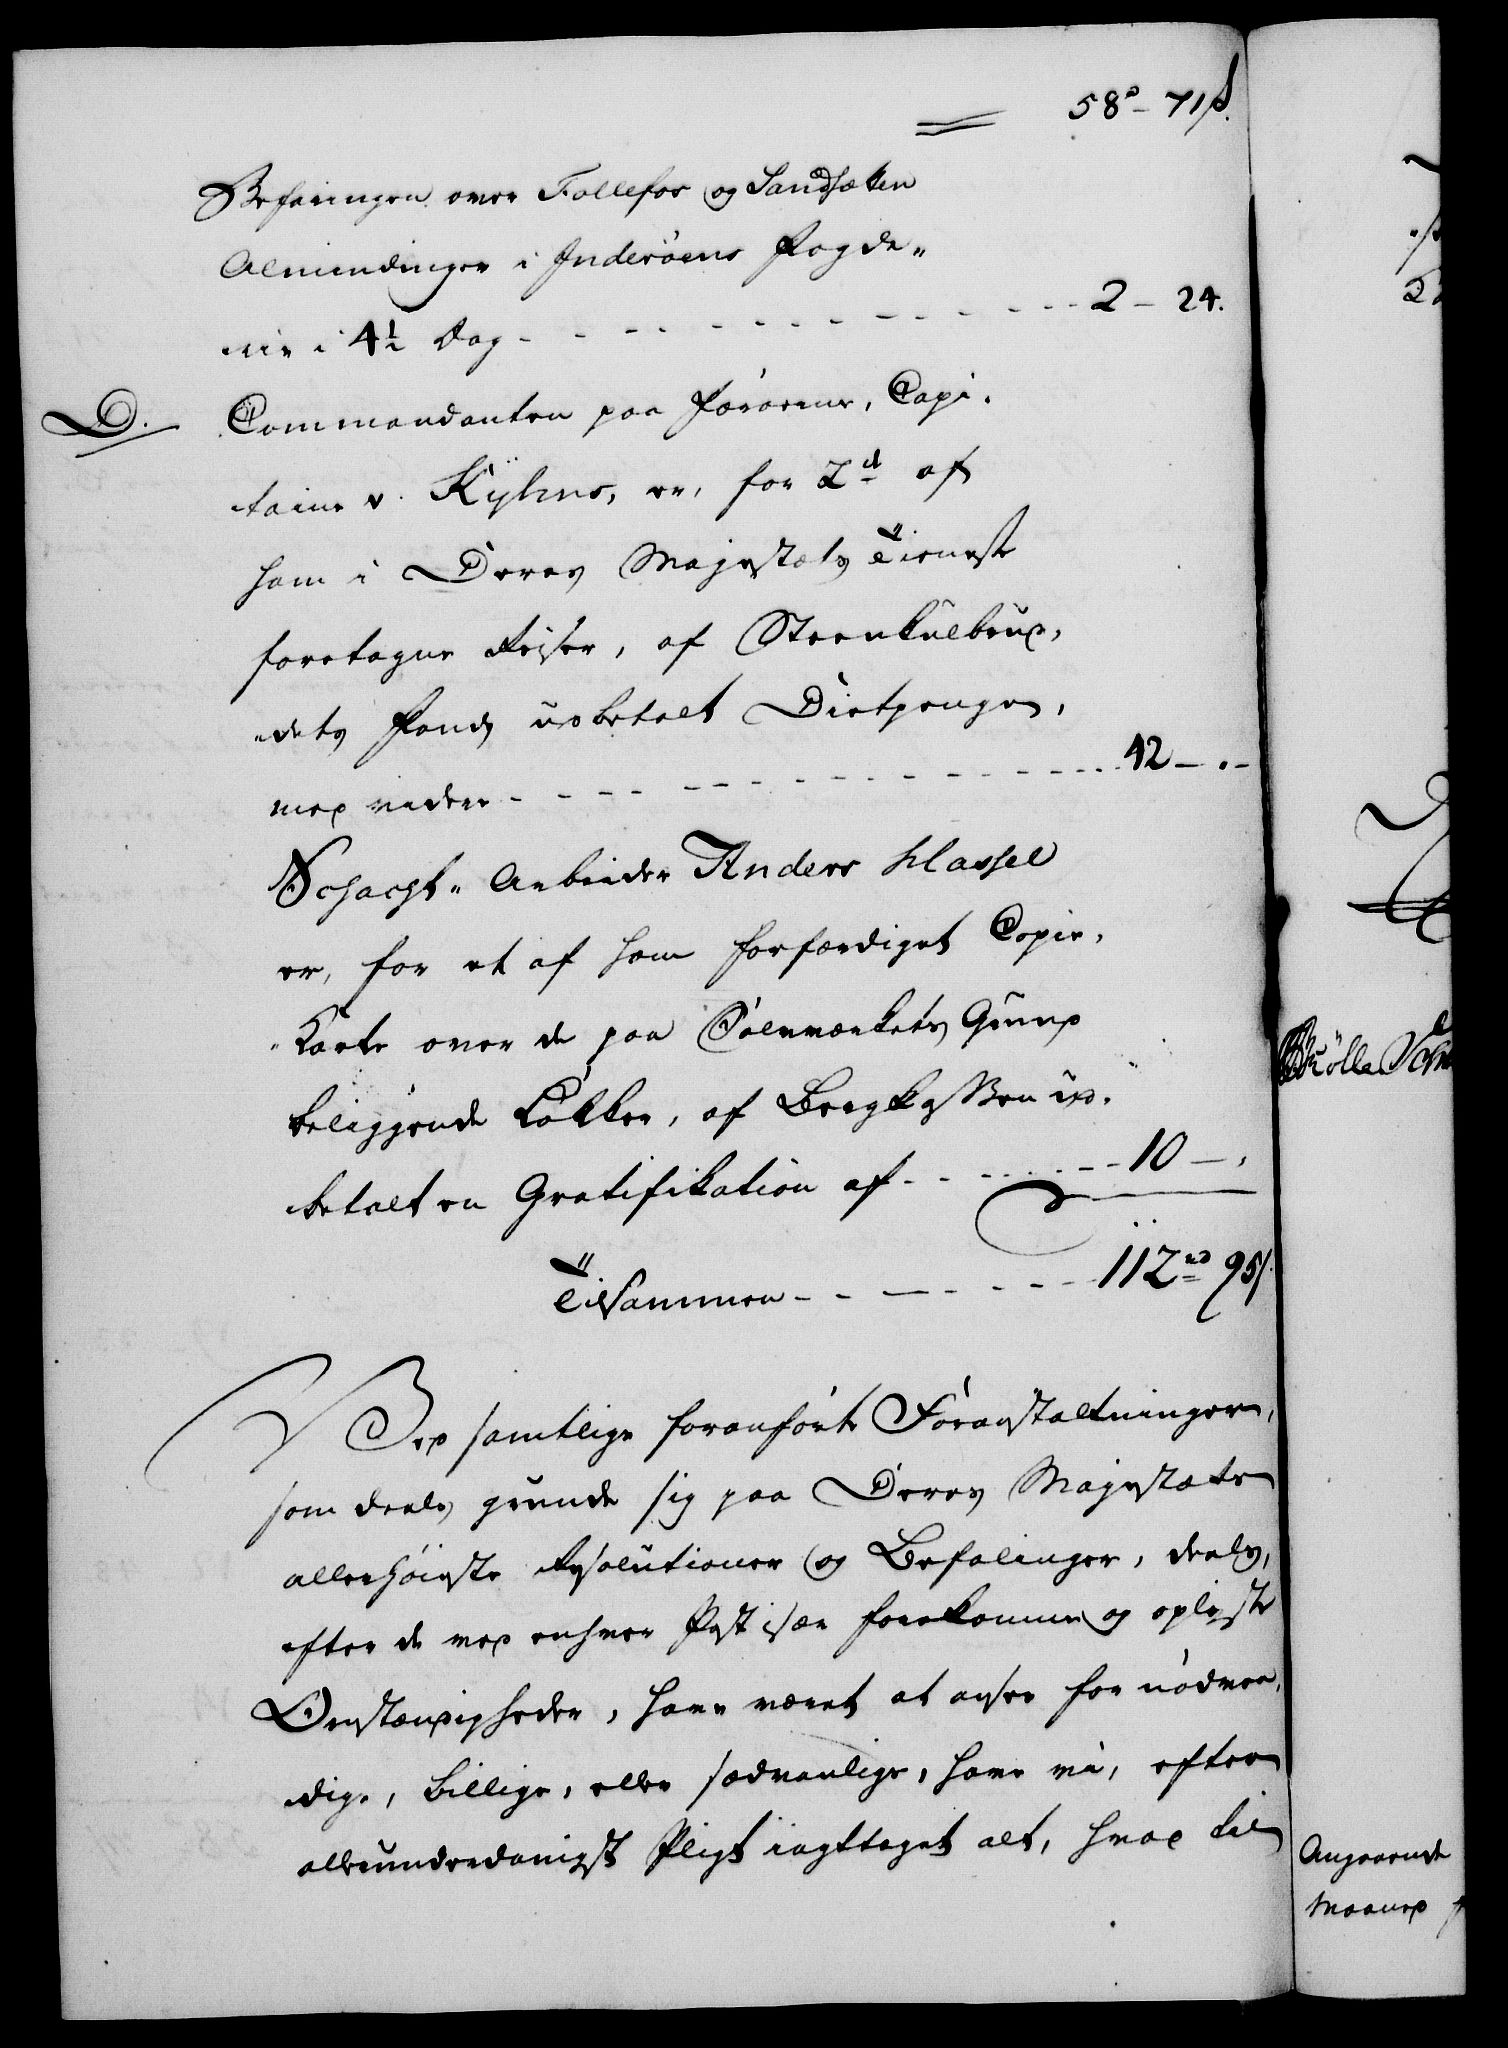 58d - 71ß.
Befaringen over Follefos og Sandsæken
Alminding er i Inderöens Fogde-
rie i 4½ Dag - - - 2 - 24.
D. Commandanten paa Færøerne, Capi-
taine v. Kyhns, er, for 2de af
ham i Deres Majestæts Tieneste
foretagne Reiser, af Steenkulbrud-
dets Fond udbetalt Diætpenge,
med videre - - - 42 - . -
Schacht-Arbeider Anders Hassel
er, for et af ham forfærdiget Copie-
Karte over de paa Sølvværkets Grund
beliggende Løkker, af Bergkassen ud-
betalt en Gratifikation af - - - 10 - .
Tilsammen - - - 112rd 95ß.
Ved samtlige foranførte Foranstaltninger,
som deels grunde sig paa Deres Majestæts
allerhøieste Resolutioner og Befalinger, deels,
efter de ved enhver Post især forekomne og oplyste
Omstændigheder, have været at ansee for nødven-
dige, billige, eller sædvanlige, have vi, efter
allerunderdanigst Pligt iagttaget alt, hvad til
Angaaende
Maaned